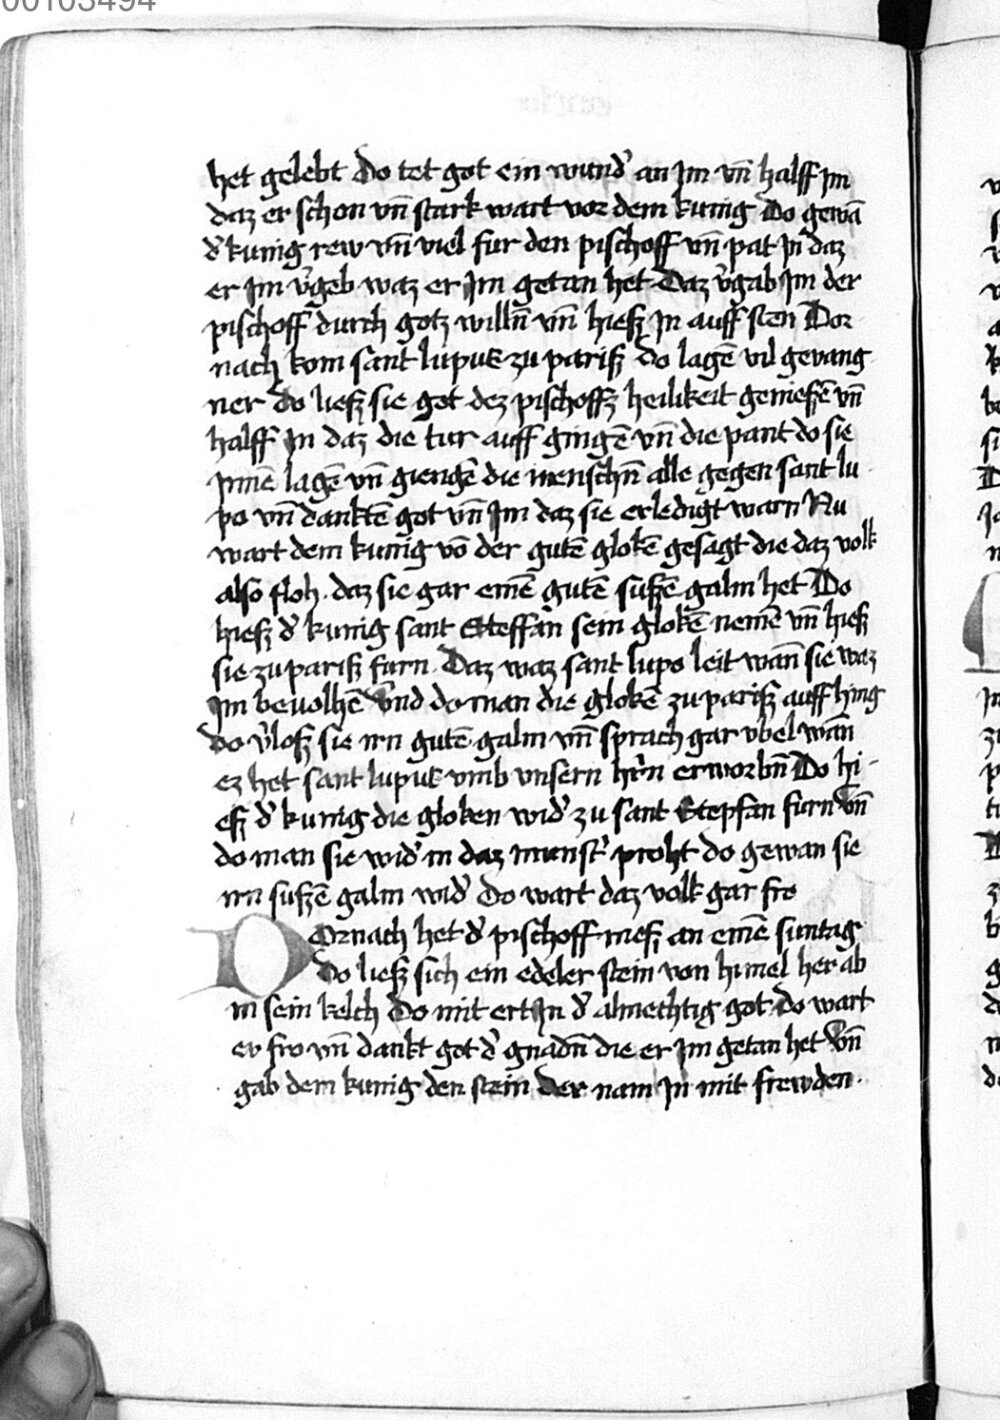 00103494
het gelebt Do tet got ein wund&#x27; an Jm vn̄ halff Jm
daz er schon vn̄ stark wart vor dem kunig Do gewā
d&#x27; kunig rew vn̄ viel fur den pischoff vn̄ pat Jn daz
er Jm v&#x27;geb waz er Jm getan het Daz v&#x27;gab Jm der
pischoff durch gotz willn̄ vn̄ hiesz Jn auff sten Dor
nach kom sant lupus zu parisz do lagē vil gevang
ner do liesz sie got dez pischoffz heilikeit genieszē vn̄
halff Jn daz die tur auff gingē vn̄ die pant do sie
Jnnē lagē vn̄ giengē die menschn̄ alle gegen sant lu
po vn̄ danktē got vn̄ Jm daz sie erledigt warn Nu
wart dem kunig vō der gutē glokē gesagt die daz volk
also floh. daz sie gar einē gutē suszē galm het Do
hiesz d&#x27; kunig sant Steffan sein glokē nemē vn̄ hiesz
sie zu parisz furn. Daz waz sant lupo leit wan̄ sie waz
Jm beuolhē Vnd do man die glokē zu parisz auff hing
do v&#x27;losz sie irn gutē galm vn̄ sprach gar vbel wan̄
ez het sant lupus vmb vnsern hr̄n erworbn̄ Do hi-
esz d&#x27; kunig die gloken wid&#x27; zu sant Stepfan furn Vn̄
do man sie wid&#x27; in daz munst&#x27; proht do gewan sie
irn suszē galm wid&#x27; Do wart daz volk gar fro
Dornach het d&#x27; pischoff mesz an einē suntag
Do liesz sich ein edeler stein von himel her ab
in sein kelch Do mit ert Jn d&#x27; almechtig got do wart
er fro vn̄ dankt got d&#x27; gnadn̄ die er Jm getan het Vn̄
gab dem kunig den stein der nam Jn mit frewden.